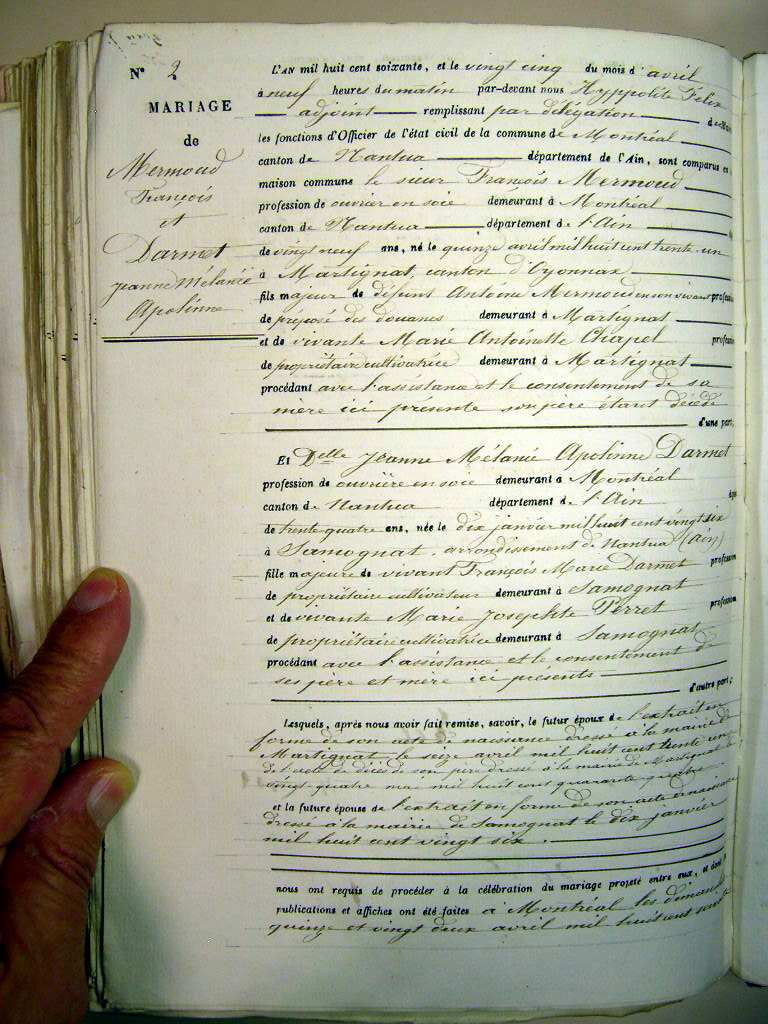 N° 2
MARIAGE
de
Mermoud
François
et
Darmet
Jeanne Mélanie
Apolinne
L'AN mil huit cent soixante, et le vingt cinq du mois d'avril
à neuf heures du matin par-devant nous Hyppolite Felix
adjoint remplissant par délégation
les fonctions d'Officier de l'état civil de la commune de Montréal
canton de Nantua département de l'Ain, sont comparus en
maison commune le sieur François Mermoud
profession de ouvrier en soie demeurant à Montréal
canton de Nantua département de l'Ain
de vingt neuf ans, né le quinze avril mil huit cent trente un
à Martignat, canton d'Oyonnax
fils majeur de défunt Antoine Mermoud en son vivant profession
de préposé des douanes demeurant à Martignat
et de vivante Marie Antoinette Chapel profession
de propriétaire cultivatrice demeurant à Martignat
procédant avec l'assistance et le consentement de sa
mère ici présente son père étant décédé
d'une part;
Et Delle Jeanne Mélanie Apolinne Darmet
profession de ouvrière en soie demeurant à Montréal
canton de Nantua département de l'Ain
de trente quatre ans, née le dix janvier mil huit cent vingt six
à Samognat, arrondissement de Nantua (Ain)
fille majeure de vivant François Marie Darmet profession
de propriétaire cultivateur demeurant à Samognat
et de vivante Marie Josephte Perret profession
de propriétaire cultivatrice demeurant à Samognat
procédant avec l'assistance et le consentement de
ses père et mère ici présents
d'autre part;
Lesquels, après nous avoir fait remise, savoir, le futur époux de l'extrait en
forme de son acte de naissance dressé à la mairie de
Martignat, le seize avril mil huit cent trente un
de l'acte de décès de son père dressé à la mairie de Martignat le
vingt-quatre mai mil huit cent quarante quatre
et la future épouse de l'extrait en forme de son acte de naissance
dressé à la mairie de Samognat le dix janvier
mil huit cent vingt six.
nous ont requis de procéder à la célébration du mariage projeté entre eux, et dont
publications et affiches ont été faites à Montréal les diman
quinze et vingt deux avril mil huit cent soix